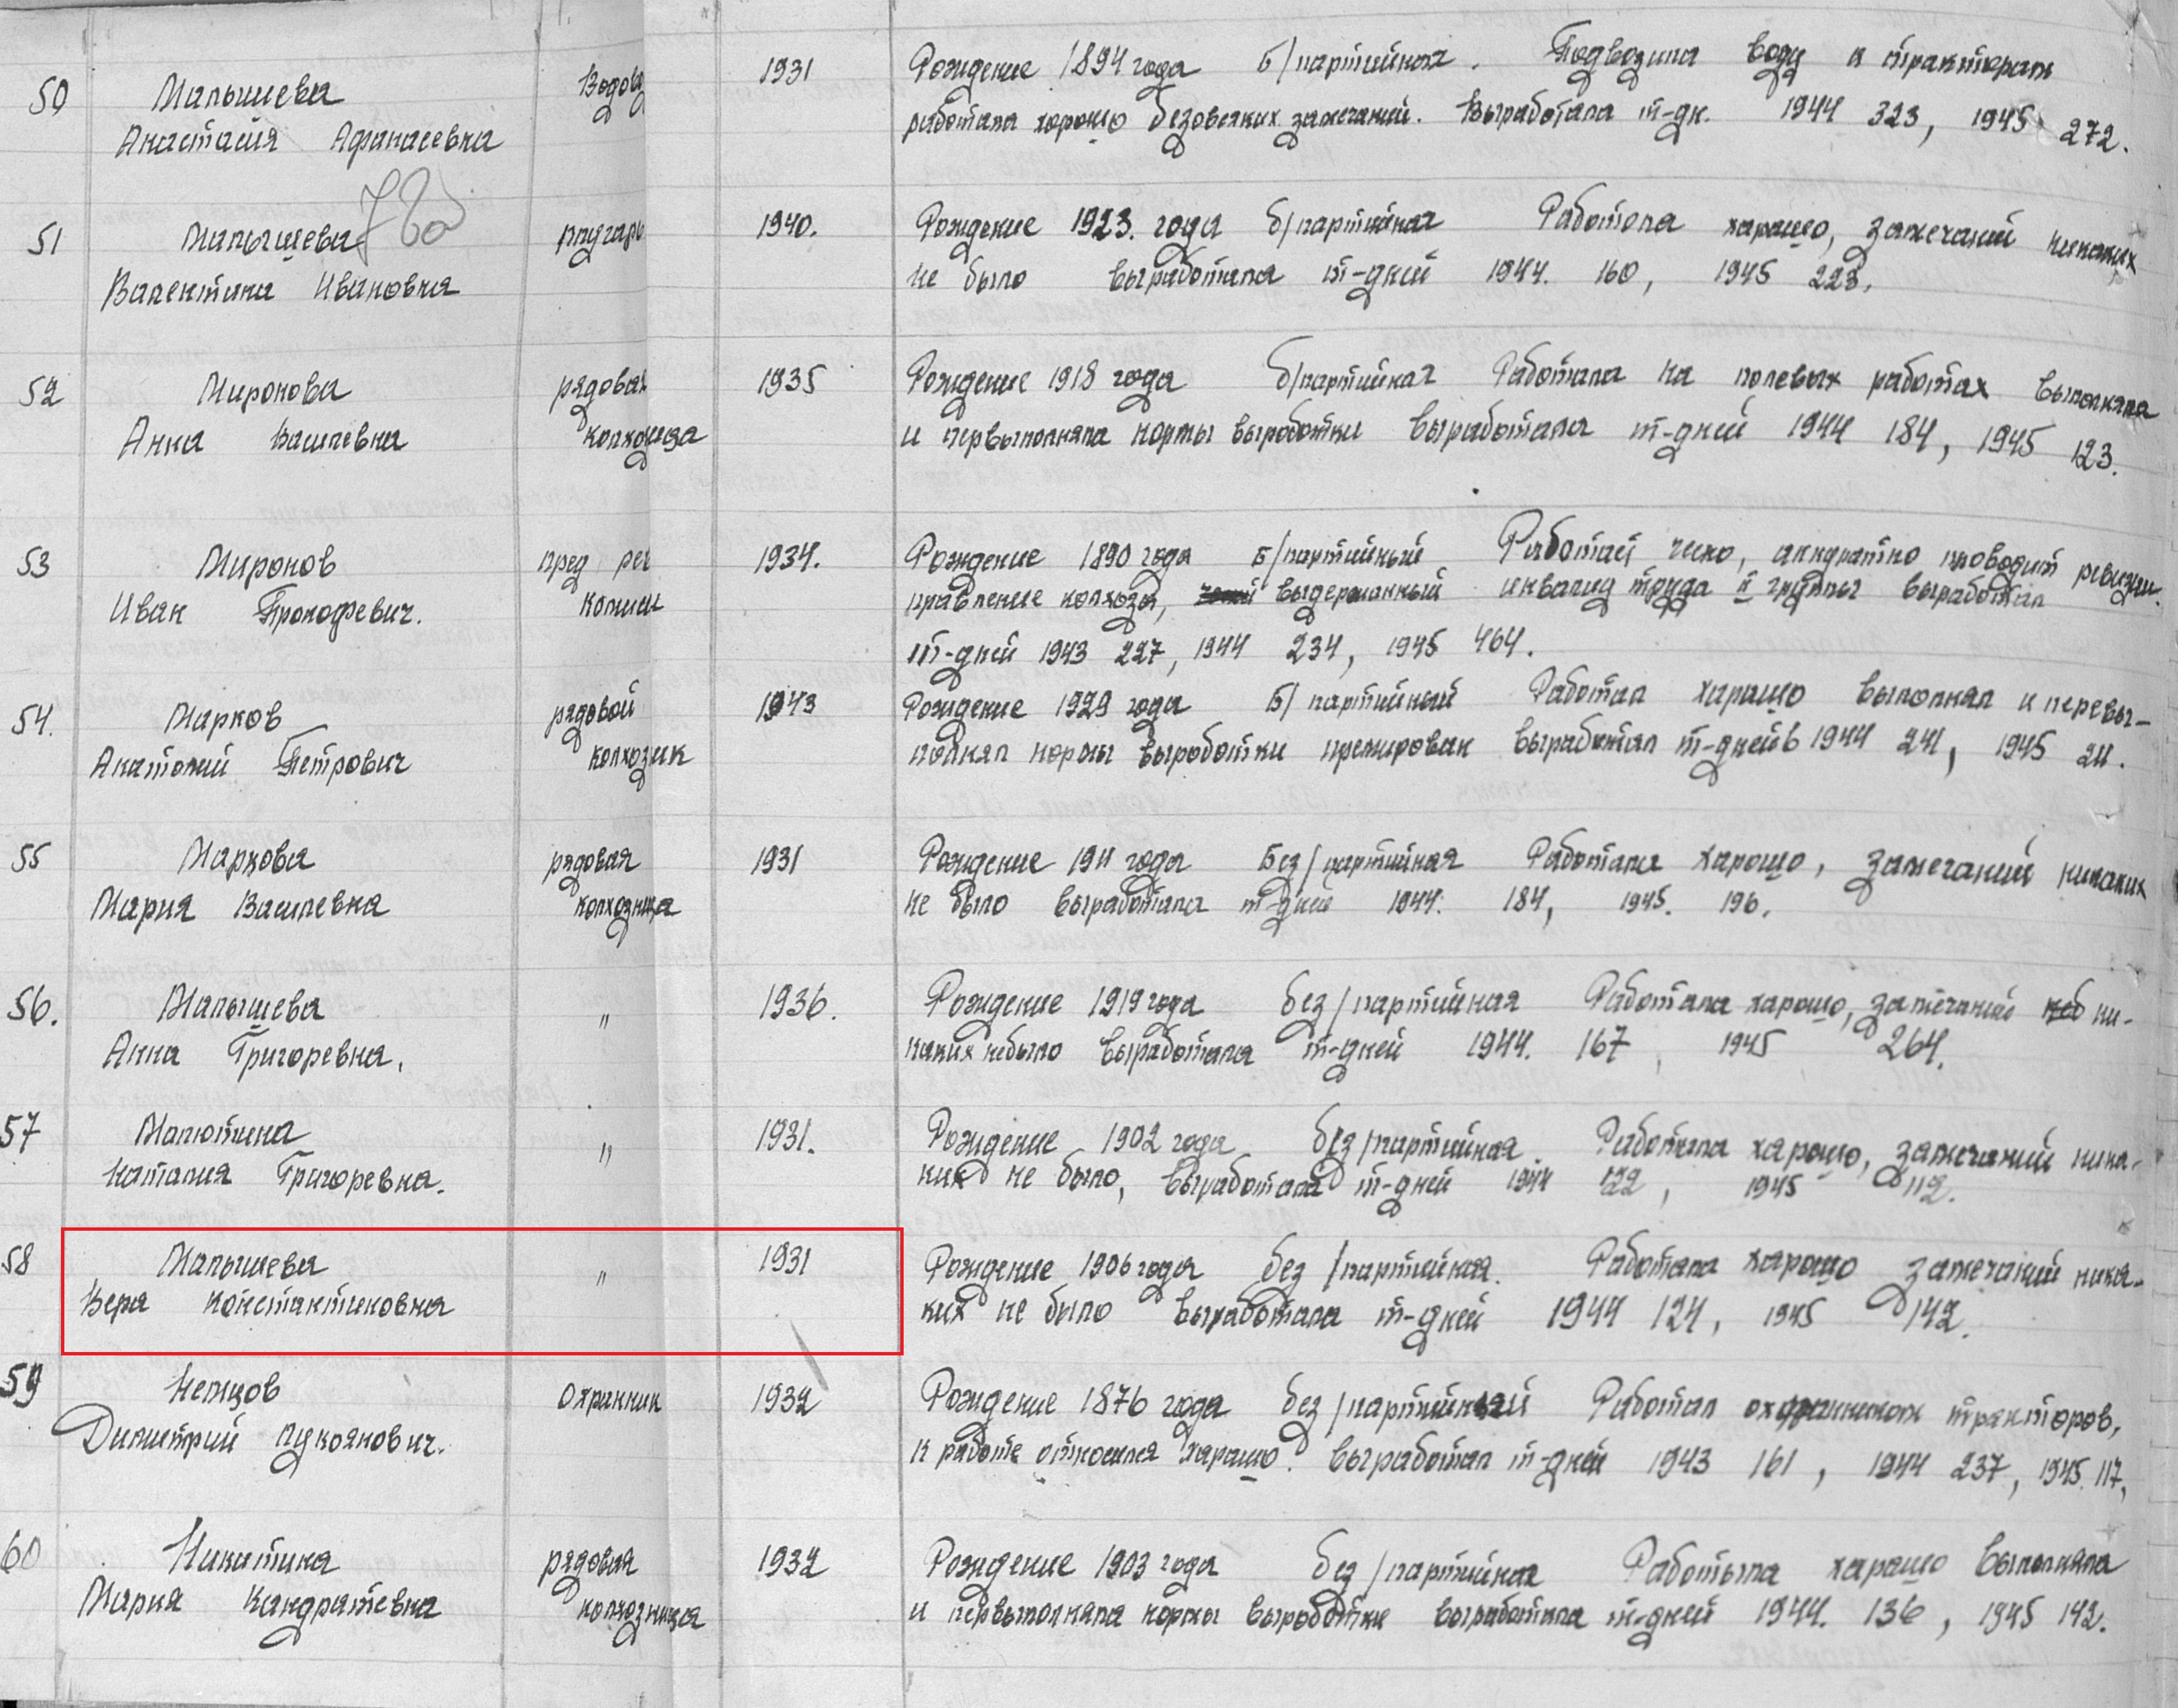 50 Малышева Водов 1931 Рождение 1894 года Б/партийная. Подвозила воду к тракторам
Анастасия Афанасевна работала хорошо безовсяких замечаний. Выработала т-дн. 1944 323, 1945 272.
51 Малышева 1940. Рождение 1923. года б/партийная Работала харашо, замечаний никаких
Валентина Ивановна не было выработала т-дней 1944. 160, 1945 223.
52 Миронова рядовая 1935 Рождение 1918 года б/партийная Работала на полевых работах выполняла
Анна Василевна колхозница и первыполняла нормы выработки выработала т-дней 1944 184, 1945 123.
53 Миронов пред рев 1934. Рождение 1890 года Б/партийный Работает аккуратно проводит ревизии.
Иван Прокофевич. комиси правление колхоза, выдержанный инвалид труда II группы выработал
т-дней 1943 227, 1944 234, 1945 464.
54. Марков рядовой 1943 Рождение 1929 года Б/партийный Работал харашо выполнял и перевы-
Анатолий Петрович колхозник полнял нормы выработки премирован выработал т-дней в 1944 241, 1945 211.
55 Маркова рядовая 1931 Рождение 1911 года Без/партийная Работала харошо, замечаний никаких
Мария Василевна колхозница не было выработала т-дней 1944. 184, 1945. 196.
56. Малышева " 1936. Рождение 1919 года без/партийная Работала харошо, замечаний ни-
Анна Григоревна. каких небыло выработала т-дней 1944. 167, 1945 264.
57 Малютина " 1931. Рождение 1902 года без/партийная. Работала харошо, замечаний ника-
Наталия Григоревна. ких не было, выработала т-дней 1944 122, 1945 112.
58 Малышева " 1931 Рождение 1906 года без/партийная. Работала харашо замечаний ника-
Вера Константиновна ких не было выработала т-дней 1944 124, 1945 142.
59 Немцов Охранник 1932 Рождение 1876 года без/партийный Работал охранником тракторов,
Димитрий Лукоянович. к работе относился харашо. выработал т-дней 1943 161, 1944 237, 1945. 117,
60 Никитина рядовая 1932 Рождение 1903 года без/партийная Работала харашо выполняла
Мария Кандратевна колхозница и первыполняла нормы выработки выработала т-дней 1944. 136, 1945 142.